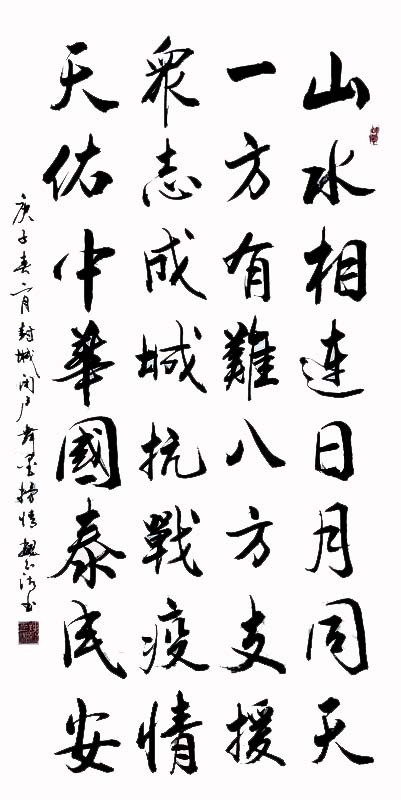 山水相连日月同天
一方有難八方支援
衆志成城抗戰疫情
天佑中華國泰民安
庚子春二月封城闭户弄墨抒情